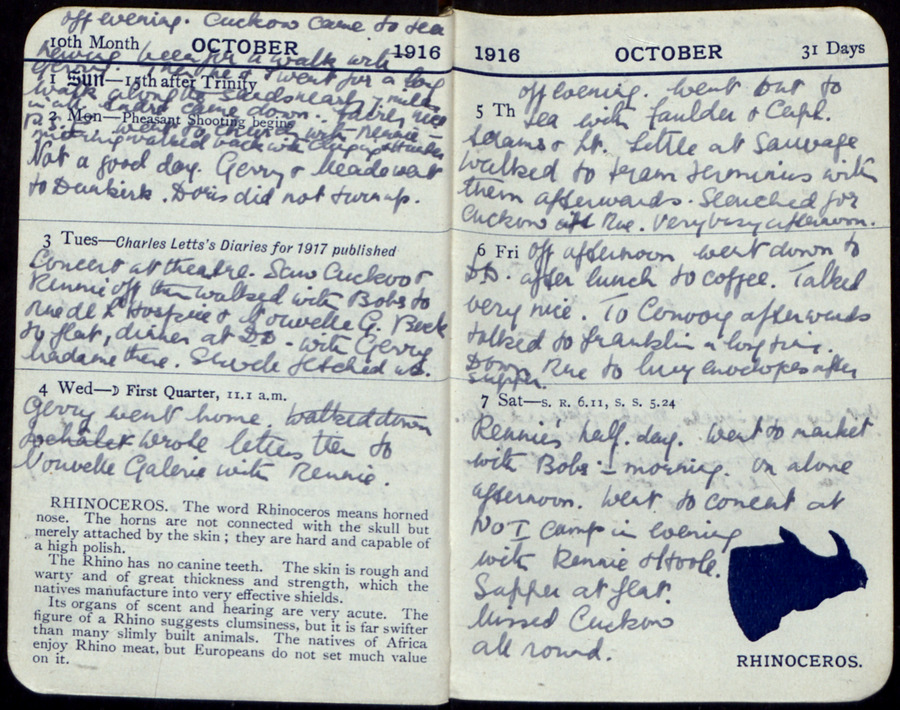 off evening. Cuckow came to tea
10th Month OCTOBER 1916
having been for a walk with
Gerry. I went for a long
1 Sun—15th after Trinity
walk along the Sands nearly 7 miles
in all. came down.
2 Mon—Pheasant Shooting begins
went to Church with Rennie —
walked back with
Not a good day. Gerry & Meade went
to Dunkirk. Doris did not turn up.
3 Tues—Charles Letts's Diaries for 1917 published
Concert at theatre. Saw Cuckow &
Rennie off then walked with Bobs to
Rue de L'Hospice & Nouvelle G. Back
to flat, dinner at DD. with Gerry
Madame there. fetched us.
4 Wed—☽ First Quarter, 11.1 a.m.
Gerry went home. Walked down
to chalet wrote letters then to
Nouvelle Galerie with Rennie.
RHINOCEROS. The word Rhinoceros means horned
nose. The horns are not connected with the skull but
merely attached by the skin; they are hard and capable of
a high polish.
The Rhino has no canine teeth. The skin is rough and
warty and of great thickness and strength, which the
natives manufacture into very effective shields.
Its organs of scent and hearing are very acute. The
figure of a Rhino suggests clumsiness, but it is far swifter
than many slimly built animals. The natives of Africa
enjoy Rhino meat, but Europeans do not set much value
on it.
1916 OCTOBER 31 Days
off evening. Went out to
5 Th tea with Faulder & Capt.
Adams & Lt. Little at Sauvage
walked to tram terminus with
them afterwards. Searched for
Cuckow Rue. Very busy afternoon.
6 Fri Off afternoon went down to
DD. after lunch to coffee. Talked
very nice. To Convoy afterwards
talked to Franklin a long time.
Down Rue to buy envelopes after
supper.
7 Sat—S. R. 6.11, S. S. 5.24
Rennie's half day. Went to market
with Bobs — morning. On alone
afternoon. Went to concert at
No I camp in evening
with Rennie & Hoole.
Supper at flat.
Missed Cuckow
all round.
RHINOCEROS.